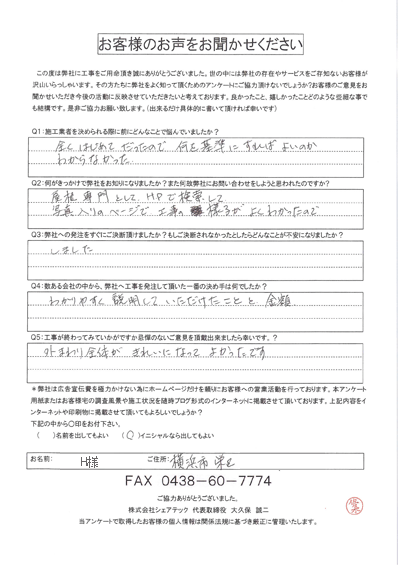 お客様のお声をお聞かせください
この度は弊社に工事をご用命頂き誠にありがとうございました。世の中には弊社の存在やサービスをご存知ないお客様が
沢山いらっしゃいます。その方たちに弊社をよく知って頂くためのアンケートにご協力頂けないでしょうか?お客様のご意見をお
聞かせいただき今後の活動に反映させていただきたいと考えております。良かったこと、嬉しかったことどのような些細な事で
も結構です。是非ご協力お願い致します。(出来るだけ具体的に書いて頂ければ幸いです)
Q1:施工業者を決められる際に前にどんなことで悩んでいましたか?
全くはじめてだったので何を基準にすればよいのか
わからなかった
Q2:何がきっかけで弊社をお知りになりましたか?また何故弊社にお問い合わせをしようと思われたのですか?
屋根専門としてHPで検索して
写真入りのページで工事の様子がよくわかったので
Q3:弊社への発注をすぐにご決断頂けましたか?もしご決断されなかったとしたらどんなことが不安になりましたか?
しました
Q4:数ある会社の中から、弊社へ工事を発注して頂いた一番の決め手は何でしたか?
わかりやすく説明していただけたことと金額
Q5:工事が終わってみていかがですか忌憚のないご意見を頂戴出来ましたら幸いです。?
外まわり全体がきれいになってよかったです
*弊社は広告宣伝費を極力かけない為にホームページだけを頼りにお客様への営業活動を行っております。本アンケート
用紙またはお客様宅の調査風景や施工状況を随時ブログ形式のインターネットに掲載させて頂いております。上記内容をイ
ンターネットや印刷物に掲載させて頂いてもよろしいでしょうか?
下記の中から○印をお付下さい。
( )名前を出してもよい (○)イニシャルなら出してもよい
お名前: H様 ご住所: 横浜市栄区
FAX 0438-60-7774
ご協力ありがとうございました。
株式会社シェアテック 代表取締役 大久保 誠二
当アンケートで取得したお客様の個人情報は関係法規に基づき厳正に管理いたします。